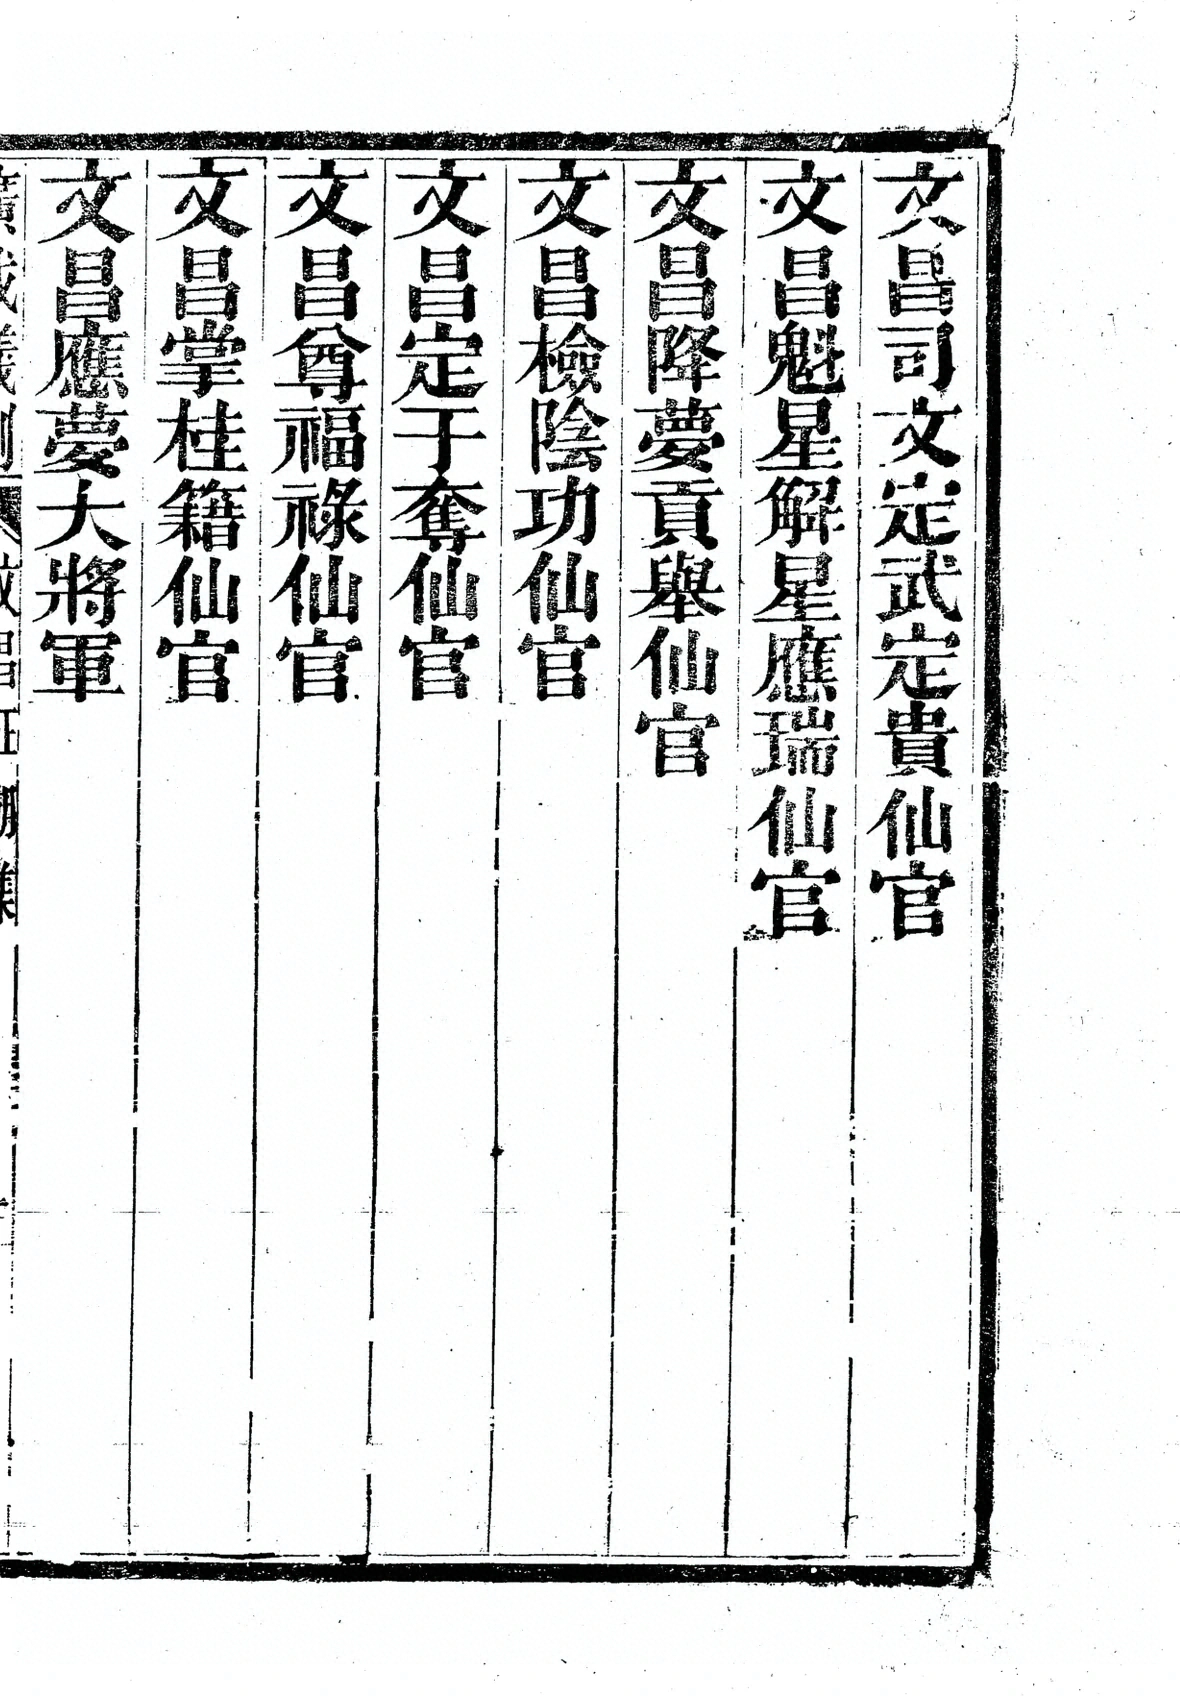 文昌司文定武定貴仙官
文昌魁星解星應瑞仙官
文昌降夢貢舉仙官
文昌檢陰功仙官
文昌定于奪仙官
文昌尊福祿仙官
文昌掌桂籍仙官
文昌應夢大將軍